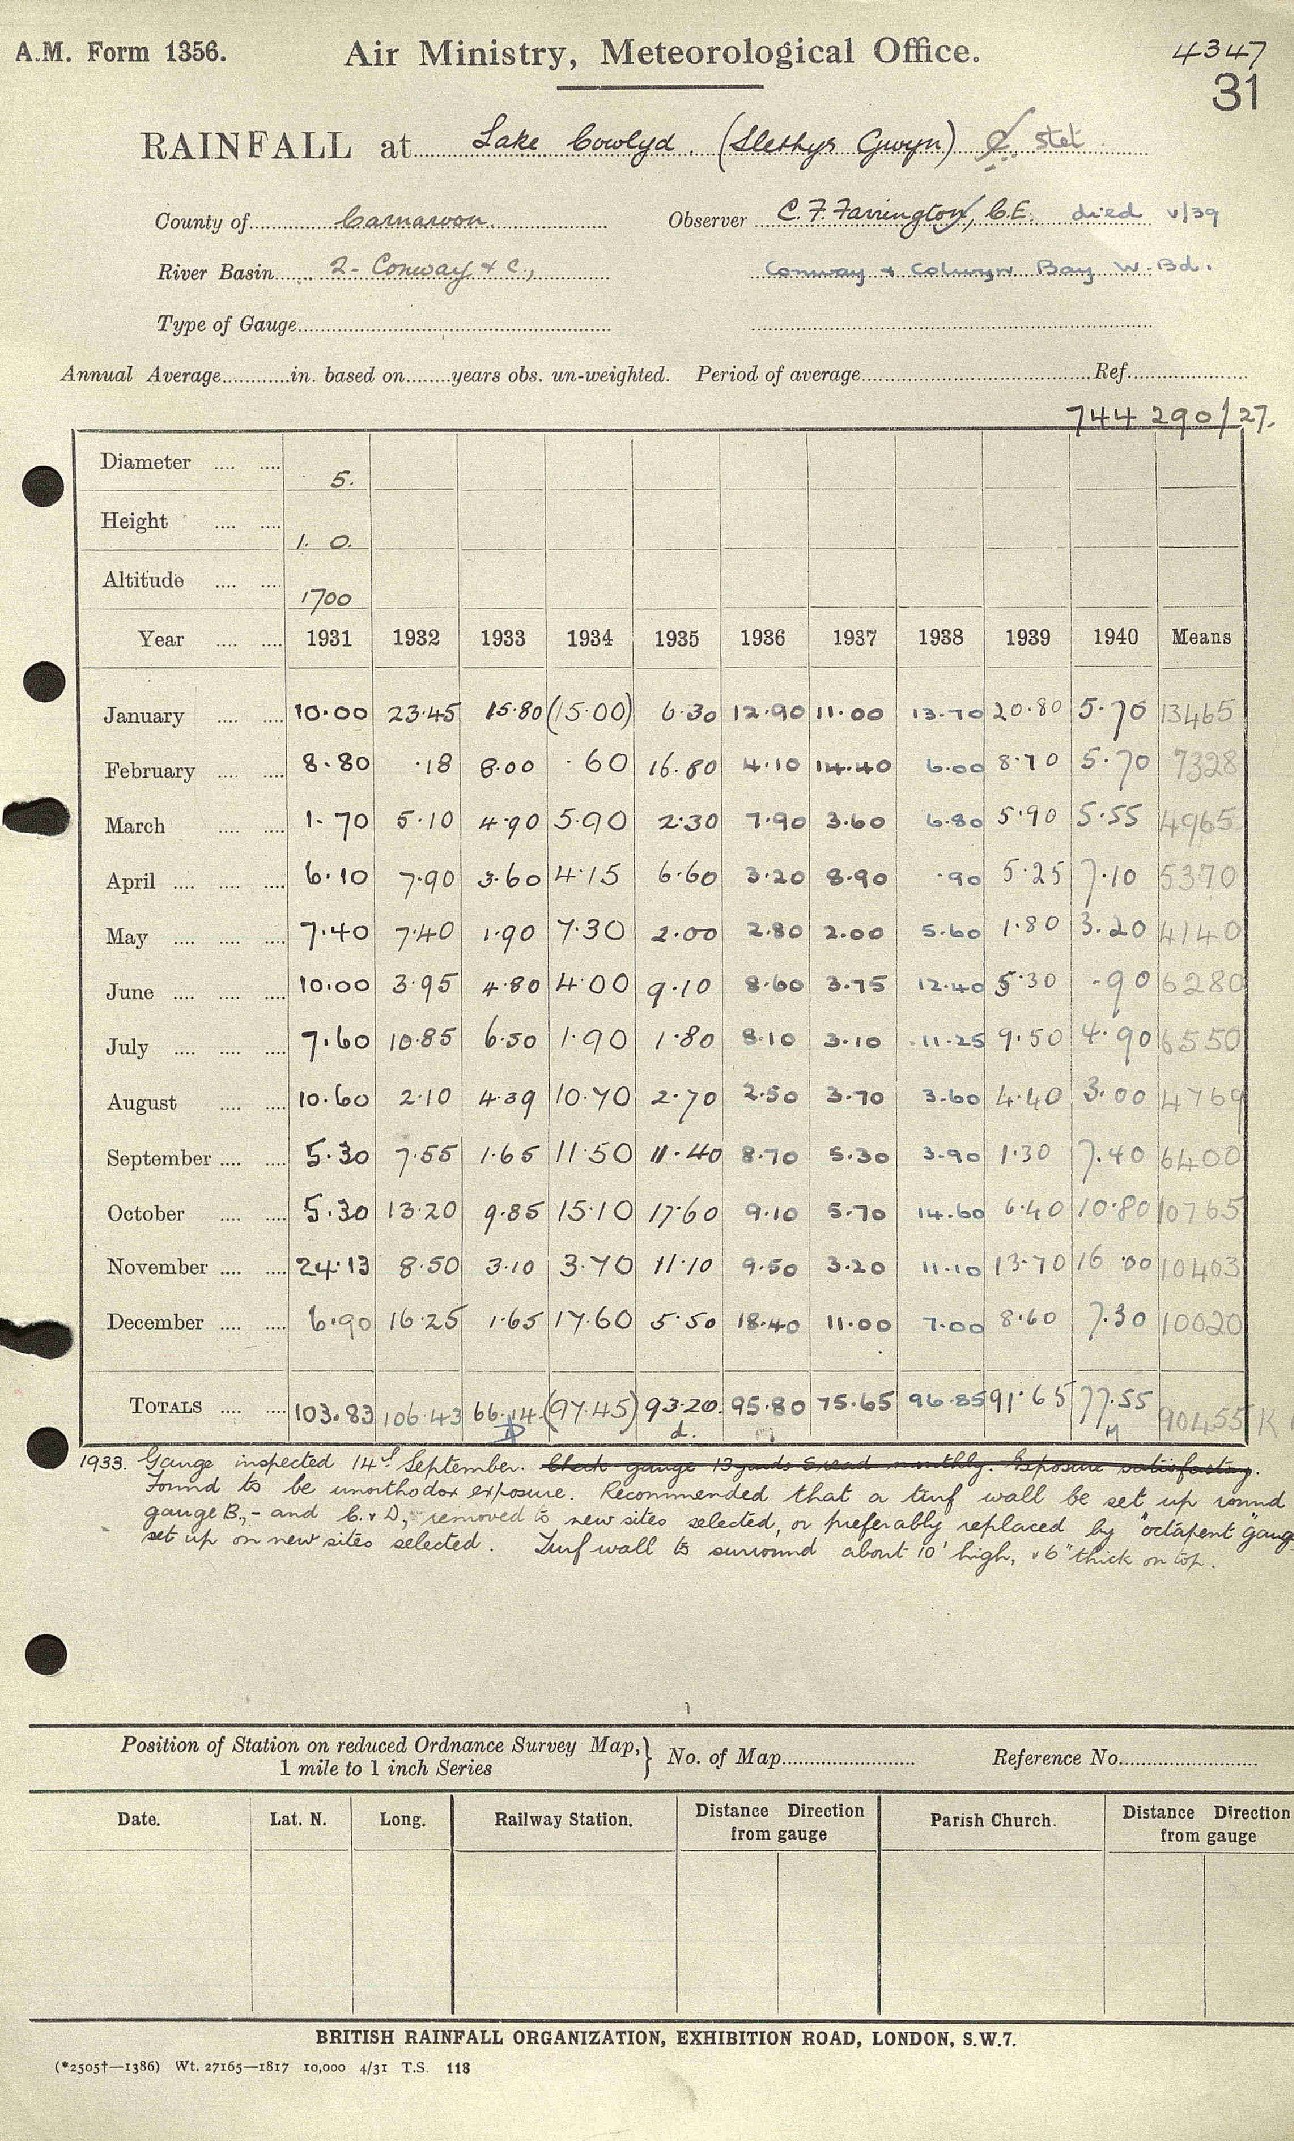 A.M. Form 1356. Air Ministry, Meteorological Office. 4347
31
RAINFALL at Lake Cowlyd. (Llethyr Gwyn) C stet
County of Carnarvon. Observer C. F. Farrington, C.E. died v/39
River Basin 2- Conway & c., Conway & Colwyn Bay W. Bd.
Type of Gauge
Annual Average in. based on years obs. un-weighted. Period of average Ref.
744 290/27.
Diameter 5.
Height 1. 0.
Altitude 1700
Year 1931 1932 1933 1934 1935 1936 1937 1938 1939 1940 Means
January 10.00 23.45 15.80 (15.00) 6.30 12.90 11.00 13.70 20.80 5.70 13465
February 8.80 .18 8.00 .60 16.80 4.10 14.40 6.00 8.70 5.70 7328
March 1.70 5.10 4.90 5.90 2.30 7.90 3.60 6.80 5.90 5.55 4965
April 6.10 7.90 3.60 4.15 6.60 3.20 8.90 .90 5.25 7.10 5370
May 7.40 7.40 1.90 7.30 2.00 2.80 2.00 5.60 1.80 3.20 4140
June 10.00 3.95 4.80 4.00 9.10 8.60 3.75 12.40 5.30 .90 6280
July 7.60 10.85 6.50 1.90 1.80 8.10 3.10 11.25 9.50 4.90 6550
August 10.60 2.10 4.39 10.70 2.70 2.50 3.70 3.60 4.40 3.00 4769
September 5.30 7.55 1.65 11.50 11.40 8.70 5.30 3.90 1.30 7.40 6400
October 5.30 13.20 9.85 15.10 17.60 9.10 5.70 14.60 6.40 10.80 10765
November 24.13 8.50 3.10 3.70 11.10 9.50 3.20 11.10 13.70 16.00 10403
December 6.90 16.25 1.65 17.60 5.50 18.40 11.00 7.00 8.60 7.30 10020
TOTALS 103.83 106.43 66.14 (97.45) 93.20 95.80 75.65 96.85 91.65 77.55 90455 K
d.
1933. Gauge inspected 14th September. Check gauge 13 yards S. read monthly. Exposure satisfactory.
Found to be unorthodox exposure. Recommended that a turf wall be set up round
gauge B, - and C. & D, removed to new sites selected, or preferably replaced by "octapent" gauge
set up on new sites selected. Turf wall to surround about 10' high, & 6" thick on top.
Position of Station on reduced Ordnance Survey Map, } No. of Map Reference No.
1 mile to 1 inch Series
Date. Lat. N. Long. Railway Station. Distance Direction Parish Church. Distance Direction
from gauge from gauge
BRITISH RAINFALL ORGANIZATION, EXHIBITION ROAD, LONDON, S.W.7.
(*2505†—1386) Wt. 27165—1817 10,000 4/31 T.S. 118